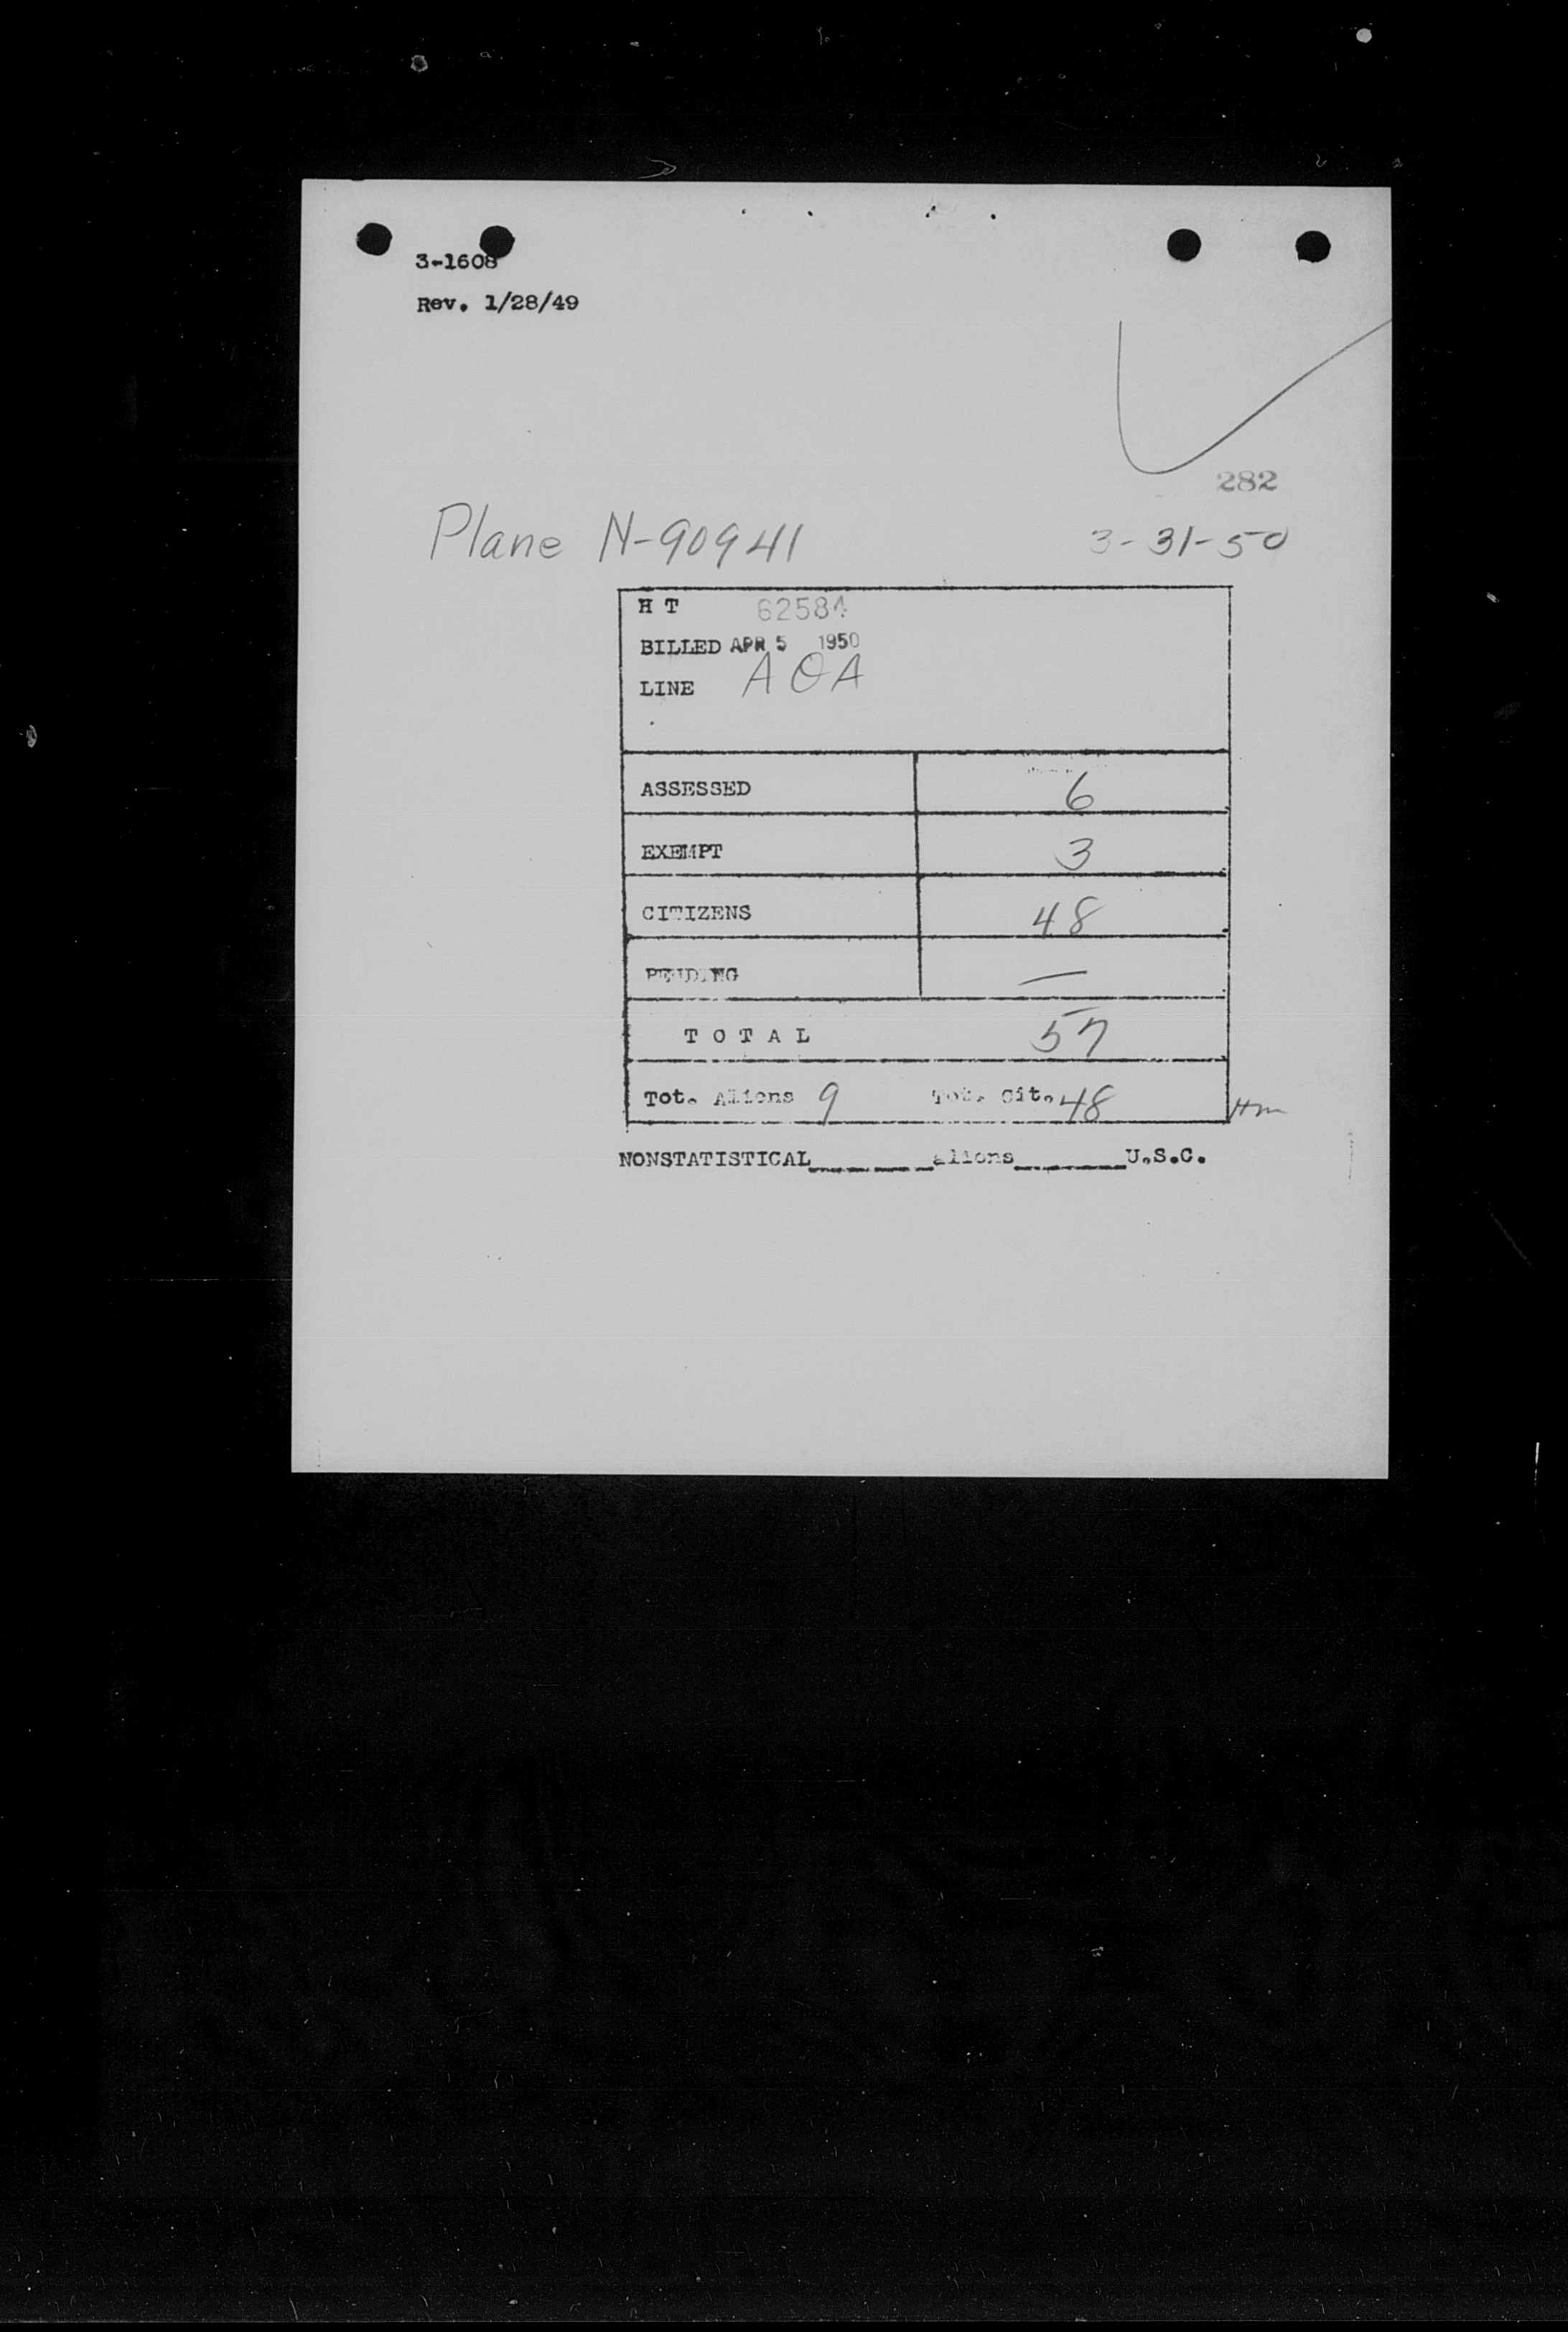 3-1608
Rev. 1/28/49
282
Plane N-90941 3-31-50
H T 62584
BILLED APR 5 1950
LINE AOA
ASSESSED 6
EXEMPT 3
CITIZENS 48
PENDING —
TOTAL 57
Tot. Aliens 9 Tot. Cit. 48 Hm
NONSTATISTICAL________aliens________U.S.C.